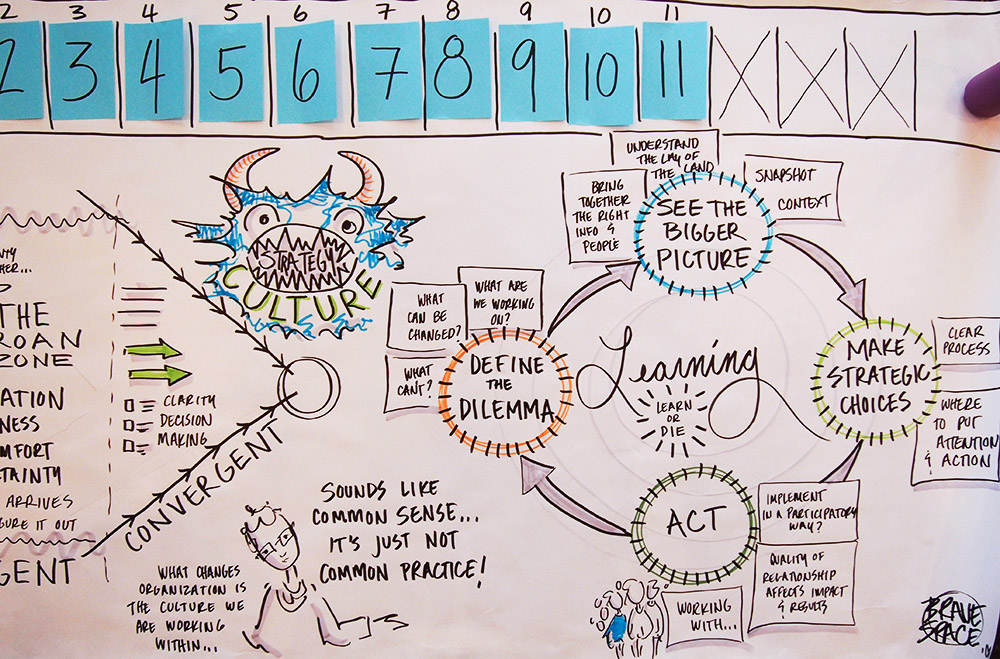 2 3 4 5 6 7 8 9 10 11
2 3 4 5 6 7 8 9 10 11 X X X
THE
ROAN
ZONE
ATION
NESS
MFORT
TAINTY
ARRIVES
URE IT OUT
GENT
CLARITY
DECISION
MAKING
CONVERGENT
STRATEGY
CULTURE
WHAT CHANGES
ORGANIZATION IS
THE CULTURE WE
ARE WORKING
WITHIN...
SOUNDS LIKE
COMMON SENSE...
IT'S JUST NOT
COMMON PRACTICE!
WHAT
CAN BE
CHANGED?
WHAT
CAN'T?
WHAT ARE
WE WORKING
ON?
DEFINE
THE
DILEMMA
BRING
TOGETHER
THE RIGHT
INFO &
PEOPLE
UNDERSTAND
THE LAY OF
THE LAND
SNAPSHOT
CONTEXT
SEE THE
BIGGER
PICTURE
Learning
LEARN
OR
DIE
MAKE
STRATEGIC
CHOICES
CLEAR
PROCESS
WHERE
TO PUT
ATTENTION
& ACTION
ACT
IMPLEMENT
IN A PARTICIPATORY
WAY?
QUALITY OF
RELATIONSHIP
AFFECTS IMPACT
& RESULTS
WORKING
WITH...
BRAVE
SPACE